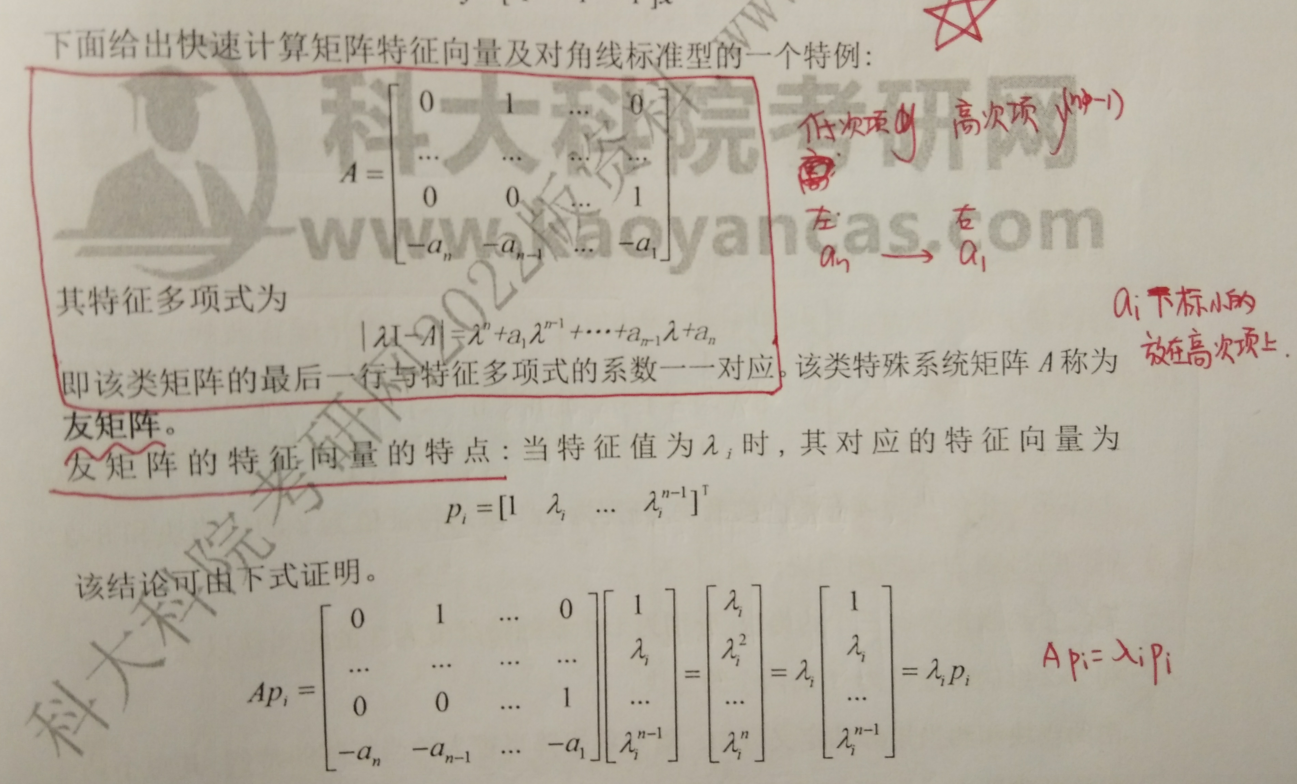 下面给出快速计算矩阵特征向量及对角线标准型的一个特例:
A = [ 0 1 ... 0
... ... ... ...
0 0 ... 1
-aₙ -aₙ₋₁ ... -a₁ ]
其特征多项式为
|λI-A|=λⁿ+a₁λⁿ⁻¹+···+aₙ₋₁λ+aₙ
即该类矩阵的最后一行与特征多项式的系数一一对应。该类特殊系统矩阵 A 称为
友矩阵。
友矩阵的特征向量的特点:当特征值为 λᵢ 时,其对应的特征向量为
pᵢ=[1 λᵢ ... λᵢⁿ⁻¹]ᵀ
该结论可由下式证明。
Apᵢ = [ 0 1 ... 0
... ... ... ...
0 0 ... 1
-aₙ -aₙ₋₁ ... -a₁ ] [ 1 λᵢ ... λᵢⁿ⁻¹ ] = [ λᵢ λᵢ² ... λᵢⁿ ] = λᵢ [ 1 λᵢ ... λᵢⁿ⁻¹ ] = λᵢpᵢ
低次项 y 高次项
左 右
aₙ → a₁
aᵢ 下标小的
放在高次项上.
Apᵢ=λᵢpᵢ
科大科院考研网
www.kaoyancas.com
科大科院考研网2022版资料